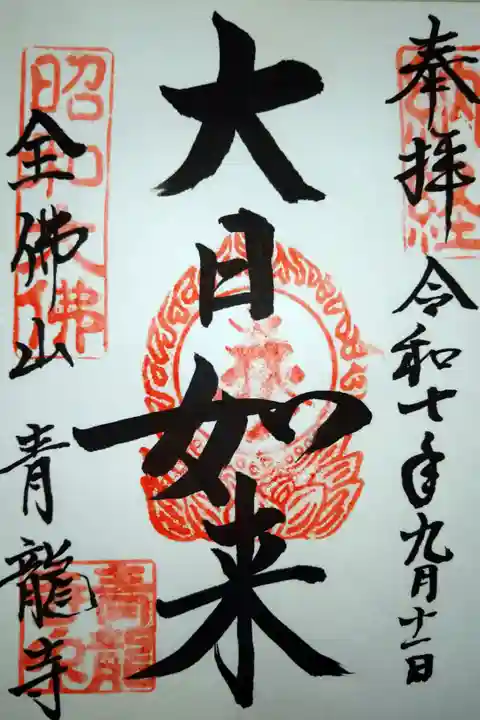 奉拝 令和七年九月十一日
大日如来
全佛山 青龍寺
昭和大佛